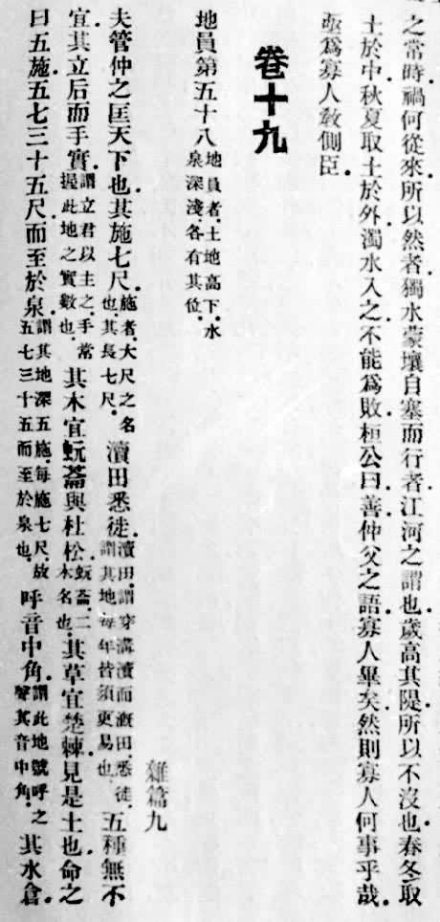 之常時禍何從來所以然者獨水蒙壤自塞而行者江河之謂也歲高其隄所以不沒也春冬取
土於中秋夏取土於外濁水入之不能為敗桓公曰善仲父之語寡人畢矣然則寡人何事乎哉
亟為寡人敎側臣
卷十九
地員第五十八地員者土地高下水泉深淺各有其位
雜篇九
夫管仲之匡天下也其施七尺施者大尺之名也其長七尺瀆田悉徒瀆田謂穿溝瀆而溉田悉徒謂其地每年皆須更易也五種無不
宜其立后而手實謂立君以主之手常握此地之實數也其木宜蚖菕與杜松蚖菕二木名也其草宜楚棘見是土也命之
曰五施五七三十五尺而至於泉謂其地深五施每施七尺故五七三十五而至於泉也呼音中角謂此地號呼之聲其音中角其水倉